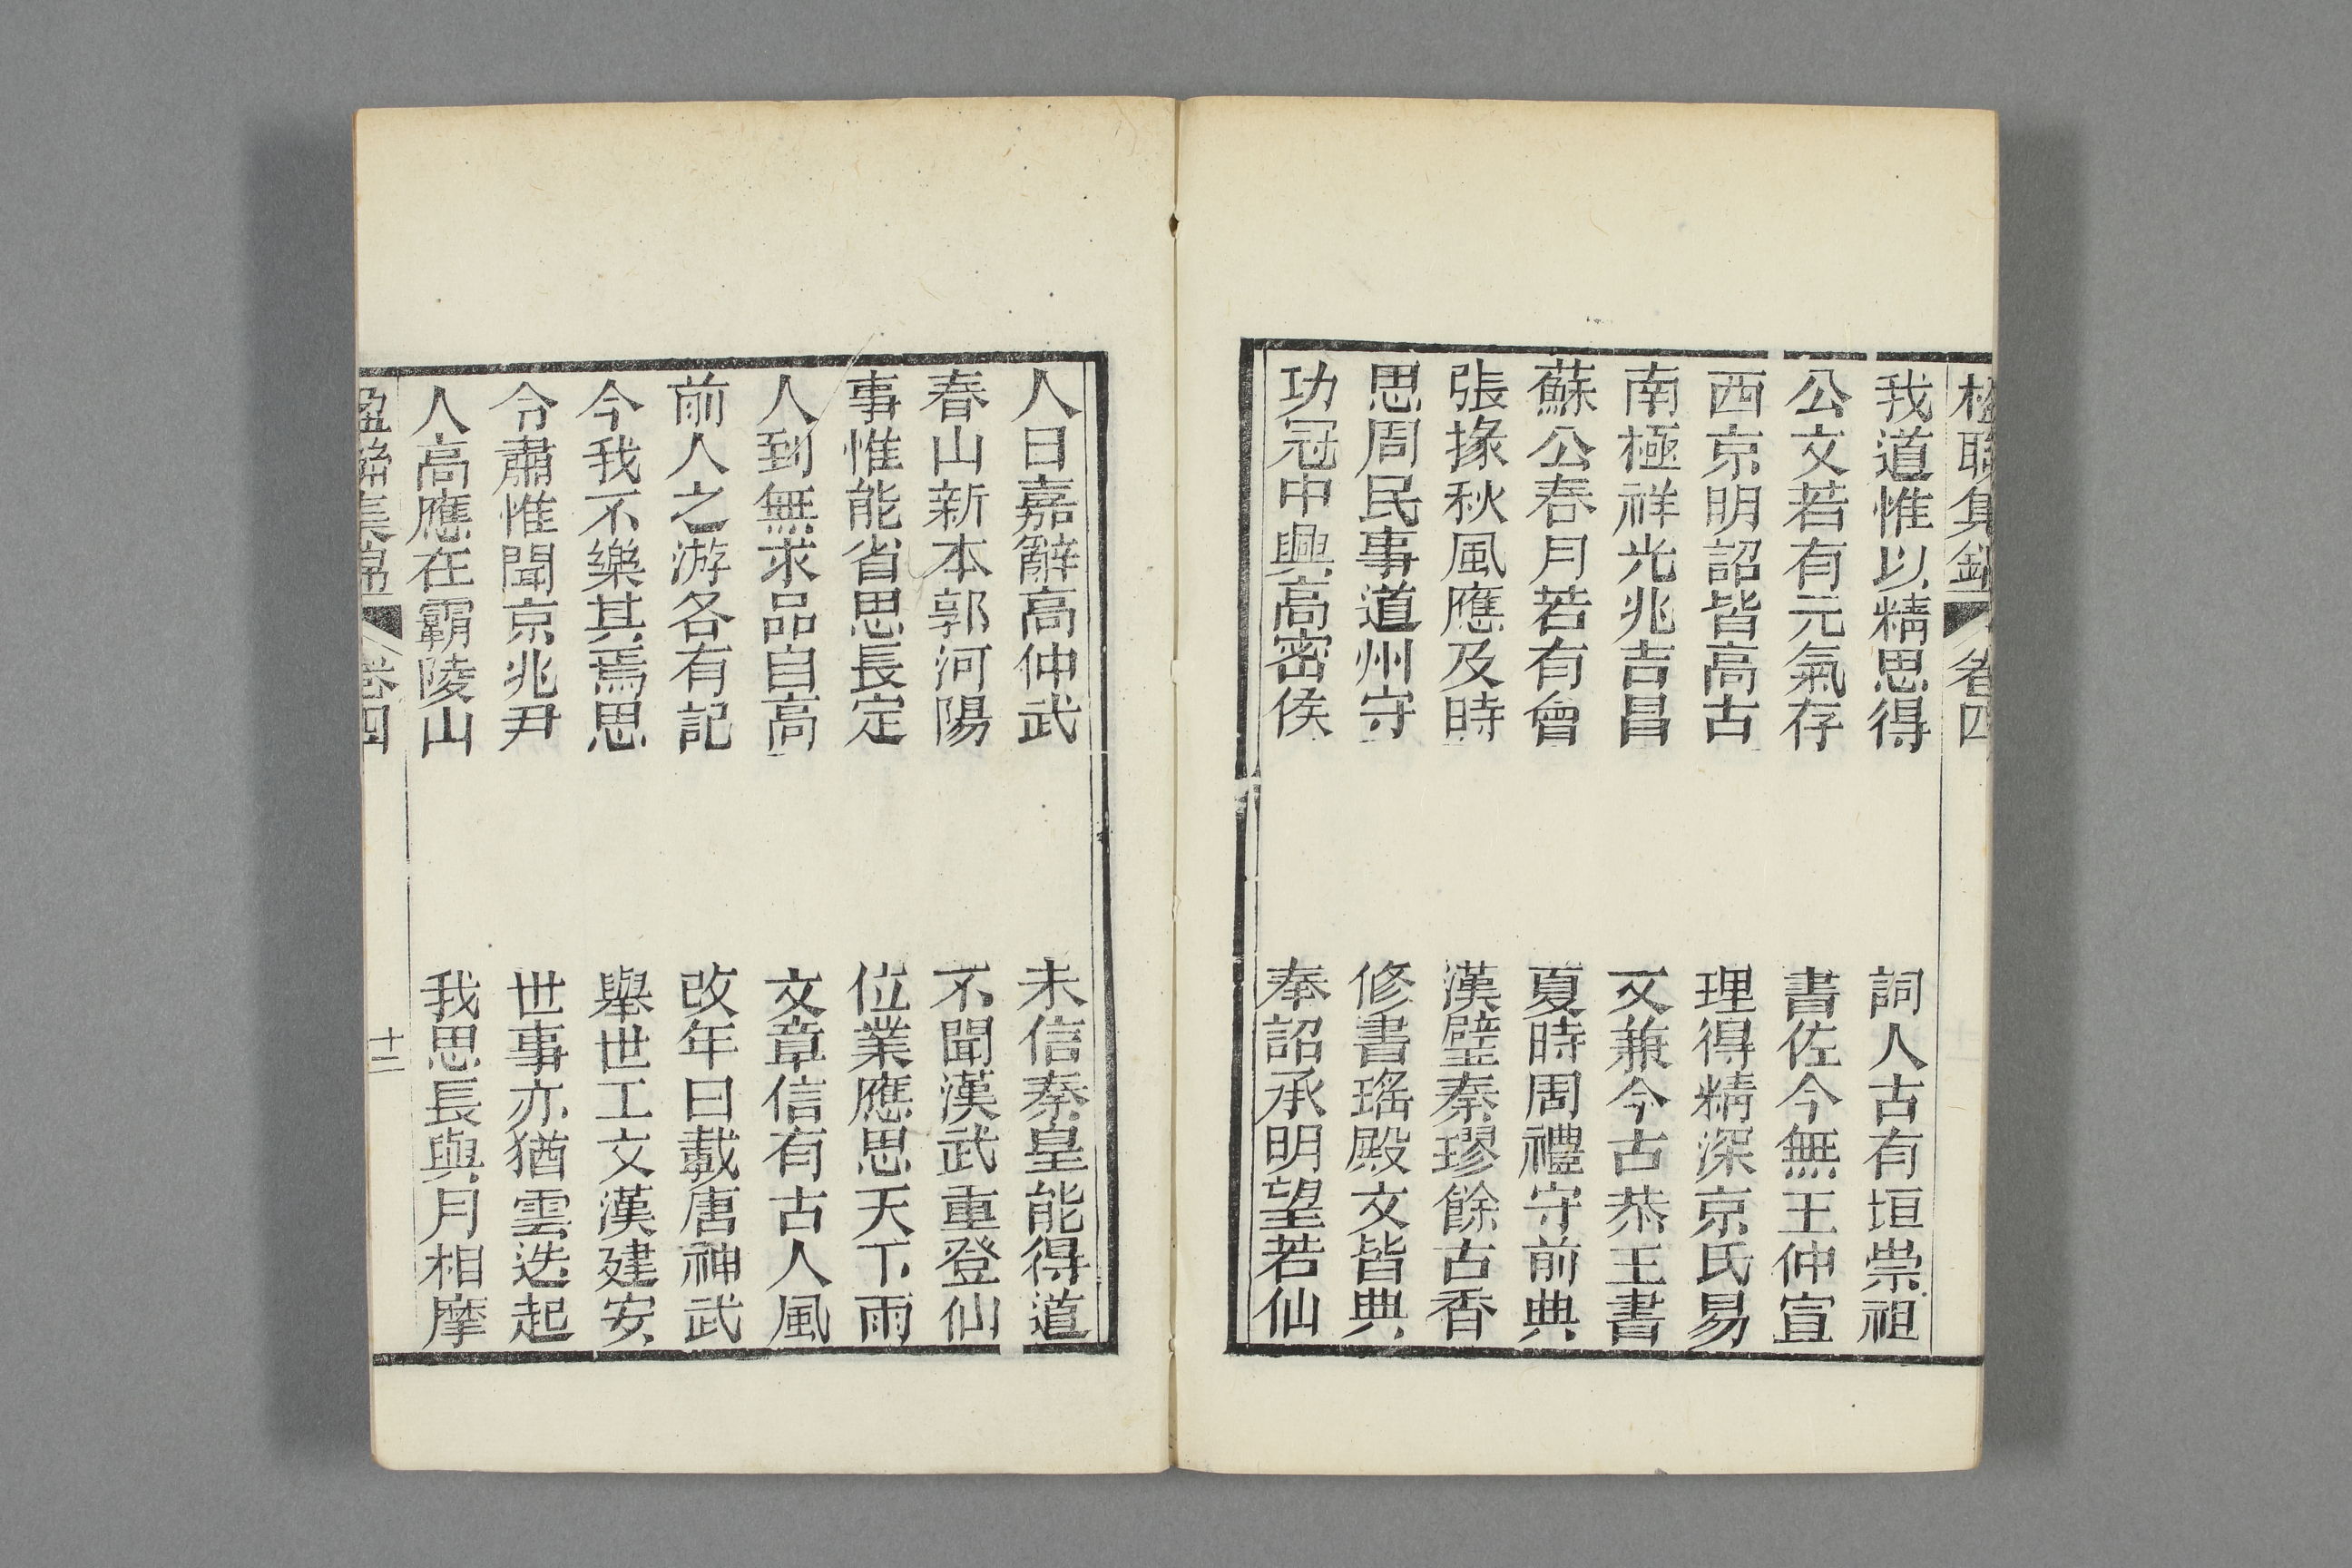 楹聯集錦 卷四
我道惟以精思得 詞人古有垣崇祖
公文若有元氣存 書佐今無王仲宣
西京明詔皆高古 理得精深京氏易
南極祥光兆吉昌 文兼今古恭王書
蘇公春月若有會 夏時周禮守前典
張掾秋風應及時 漢璧秦璆餘古香
思周民事道州守 修書瑤殿文皆典
功冠中興高密侯 奉詔承明望若仙
人日嘉辭高仲武 未信秦皇能得道
春山新本郭河陽 不聞漢武重登仙
事惟能省思長定 位業應思天下雨
人到無求品自高 文章信有古人風
前人之游各有記 改年曰載唐神武
今我不樂其焉思 舉世工文漢建安
令肅惟聞京兆尹 世事亦猶雲迭起
人高應在霸陵山 我思長與月相摩
楹聯集錦 卷四 十二